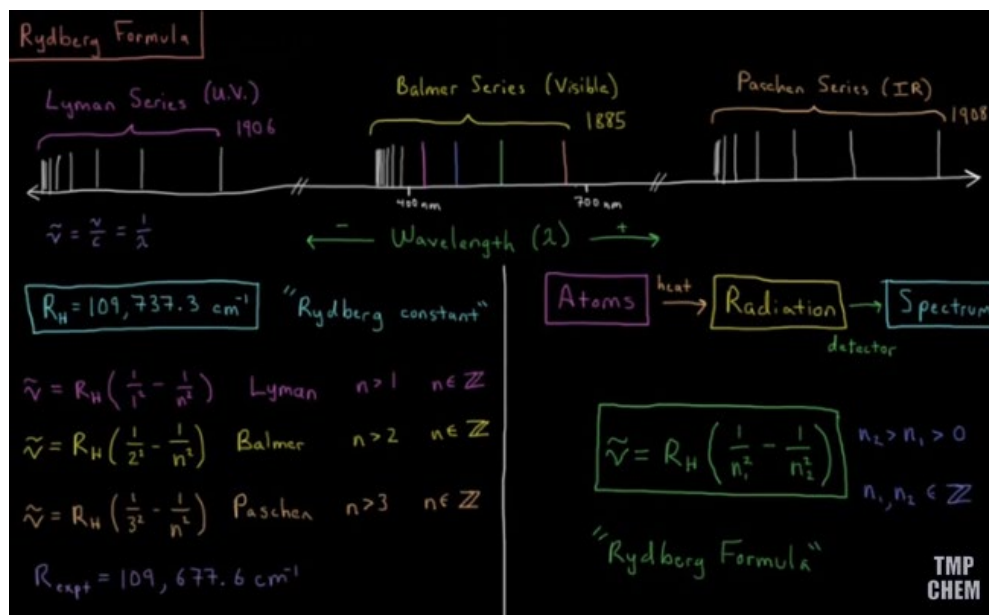 Rydberg Formula
Lyman Series (U.V.)
1906
Balmer Series (Visible)
1885
Paschen Series (IR)
1908
400 nm
700 nm
− Wavelength (λ) +
ṽ = ν/c = 1/λ
R_H = 109,737.3 cm⁻¹
"Rydberg constant"
ṽ = R_H (1/1² − 1/n²) Lyman n > 1 n ∈ ℤ
ṽ = R_H (1/2² − 1/n²) Balmer n > 2 n ∈ ℤ
ṽ = R_H (1/3² − 1/n²) Paschen n > 3 n ∈ ℤ
R_expt = 109,677.6 cm⁻¹
Atoms heat Radiation detector Spectrum
ṽ = R_H (1/n₁² − 1/n₂²)
n₂ > n₁ > 0
n₁, n₂ ∈ ℤ
"Rydberg Formula"
TMP
CHEM